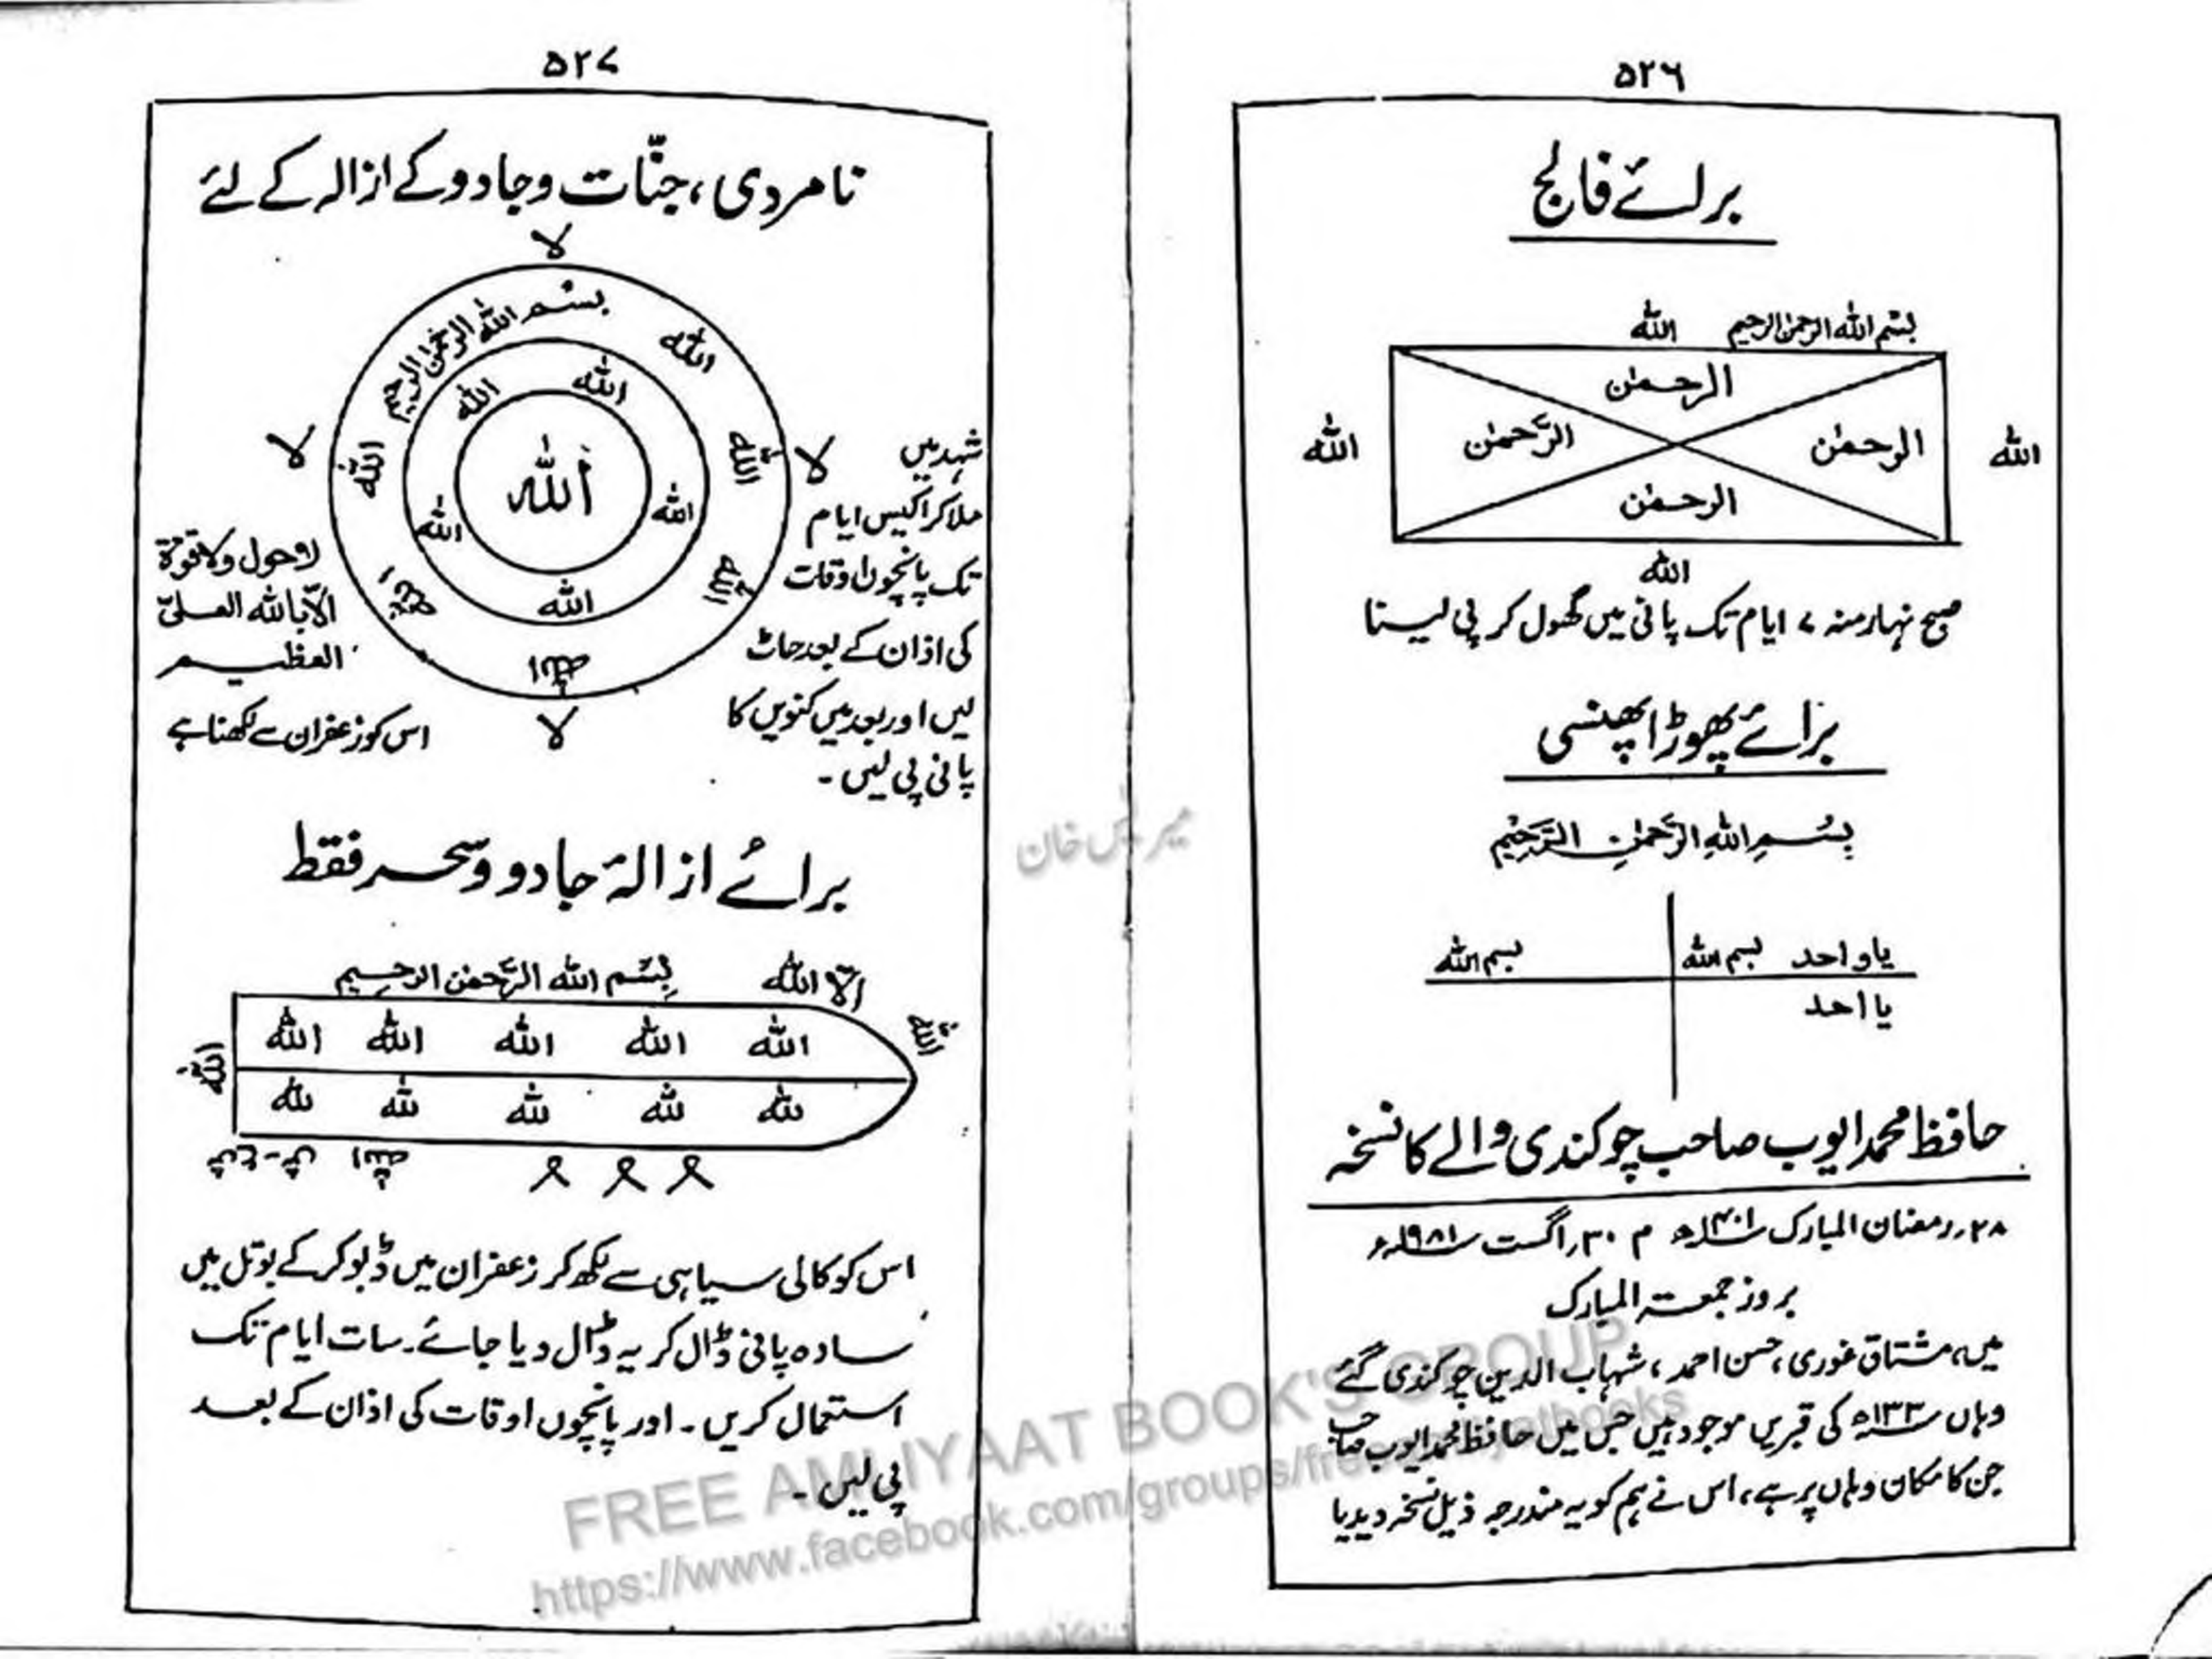 ۵۲۶
برائے فالج
بسم اللہ الرحمٰن الرحیم اللہ
الرحمٰن
اللہ الرحمٰن الرَّحمٰن اللہ
الرحمٰن
اللہ
صبح نہار منہ ۷ ایام تک پانی میں گھول کر پی لینا
برائے پھوڑا پھنسی
بِسْمِ اللہِ الرَّحمٰنِ الرَّحِیْمِ
یا واحد بسم اللہ بسم اللہ
یا احد
حافظ محمد ایوب صاحب چوکنڈی والے کا نسخہ
۲۸؍ رمضان المبارک ۱۴۰۱ھ م ۳۰؍ اگست ۱۹۸۱ء
بروز جمعتہ المبارک
میں، مشتاق غوری، حسن احمد، شہاب الدین چوکنڈی گئے
وہاں ۱۳۳ھ کی قبریں موجود ہیں جس میں حافظ محمد ایوب صاحب
جن کا مکان وہاں پر ہے، اس نے ہم کو یہ مندرجہ ذیل نسخہ دیدیا
۵۲۷
نامردی، جنّات و جادو کے ازالہ کے لئے
لا
بسم اللہ الرحمٰن الرحیم
اللہ
اللہ اللہ
لا اللہ اللہ لا
اللہ
اللہ اللہ
اللہ اللہ
اللہ
اللہ
لا
شہد میں
ملا کر اکیس ایام
تک پانچوں اوقات
کی اذان کے بعد چاٹ
لیں اور بعد میں کنویں کا
پانی پی لیں ۔
لا حول ولا قوۃ
الّا باللہ العلیّ
العظیم
اس کو زعفران سے لکھنا ہے
برائے ازالۂ جادو و سحر فقط
الّا اللہ بِسْم اللہ الرَّحمٰن الرحِیم
اللہ
اللہ اللہ اللہ اللہ اللہ
اللہ
للہ للہ للہ للہ للہ
اللہ
اس کو کالی سیاہی سے لکھ کر زعفران میں ڈبو کر کے بوتل میں
سادہ پانی ڈال کر یہ ڈال دیا جائے۔ سات ایام تک
استعمال کریں ۔ اور پانچوں اوقات کی اذان کے بعد
پی لیں ۔
FREE AMLIYAAT BOOK'S GROUP
https://www.facebook.com/groups/freeamliyatbooks